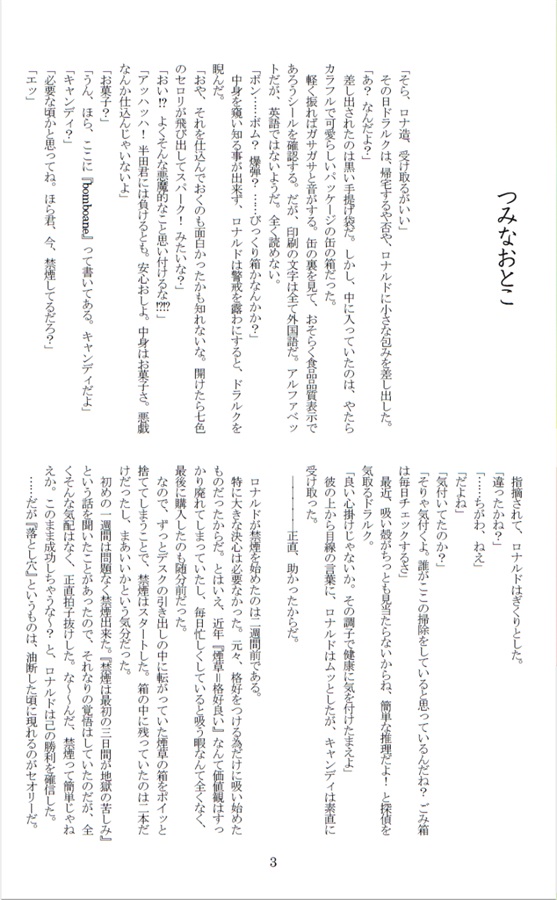 つみなおとこ
「そら、ロナ造、受け取るがいい」
その日ドラルクは、帰宅するや否や、ロナルドに小さな包みを差し出した。
「あ？　なんだよ？」
差し出されたのは黒い手提げ袋だ。しかし、中に入っていたのは、やたら
カラフルで可愛らしいパッケージの缶の箱だった。
軽く振ればガサガサと音がする。缶の裏を見て、おそらく食品品質表示で
あろうシールを確認する。だが、印刷の文字は全て外国語だ。アルファベッ
トだが、英語ではないようだ。全く読めない。
「ボン……ボム？　爆弾？　……びっくり箱かなんかか？」
中身を窺い知る事が出来ず、ロナルドは警戒を露わにすると、ドラルクを
睨んだ。
「おや、それを仕込んでおくのも面白かったかも知れないな。開けたら七色
のセロリが飛び出してスパーク！　みたいな？」
「おい!?　よくそんな悪魔的なこと思い付けるな!?!?」
「アッハッハ！　半田君には負けるとも。安心おしよ。中身はお菓子さ。悪戯
なんか仕込んじゃいないよ」
「お菓子？」
「うん、ほら、ここに『bomboane』って書いてある。キャンディだよ」
「キャンディ？」
「必要な頃かと思ってね。ほら君、今、禁煙してるだろ？」
「エッ」
指摘されて、ロナルドはぎくりとした。
「違ったかね？」
「……ちがわ、ねえ」
「だよね」
「気付いてたのか？」
「そりゃ気付くよ。誰がここの掃除をしていると思っているんだね？　ごみ箱
は毎日チェックするさ」
最近、吸い殻がちっとも見当たらないからね、簡単な推理だよ！　と探偵を
気取るドラルク。
「良い心掛けじゃないか。その調子で健康に気を付けたまえよ」
彼の上から目線の言葉に、ロナルドはムッとしたが、キャンディは素直に
受け取った。
――――正直、助かったからだ。
ロナルドが禁煙を始めたのは二週間前である。
特に大きな決心は必要なかった。元々、格好をつける為だけに吸い始めた
ものだったからだ。とはいえ、近年『煙草＝格好良い』なんて価値観はすっ
かり廃れてしまっていたし、毎日忙しくしていると吸う暇なんて全くなく、
最後に購入したのも随分前だった。
なので、ずっとデスクの引き出しの中に転がっていた煙草の箱をポイッと
捨ててしまうことで、禁煙はスタートした。箱の中に残っていたのは二本だ
けだったし、まあいいかという気分だった。
初めの一週間は問題なく禁煙出来た。『禁煙は最初の三日間が地獄の苦しみ』
という話を聞いたことがあったので、それなりの覚悟はしていたのだが、全
くそんな気配はなく、正直拍子抜けした。な～～んだ、禁煙って簡単じゃね
えか。このまま成功しちゃうな～？　と、ロナルドは己の勝利を確信した。
……だが『落とし穴』というものは、油断した頃に現れるのがセオリーだ。
3